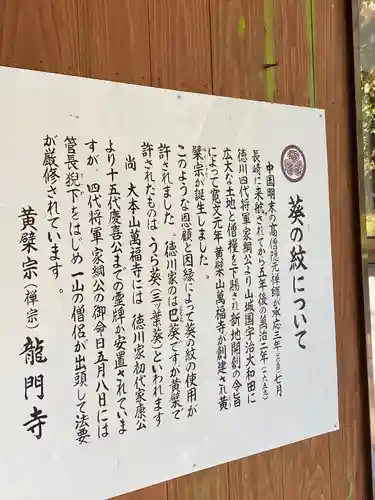 葵の紋について
中国明末の高僧隠元禅師が承応三年(一六五四)七月
長崎に来航されてから五年後の萬治二年(一六五九)
徳川四代将軍家綱公より山城国宇治大和田に
広大な土地と僧糧を下賜され新地開創の令旨
によって寛文元年黄檗山萬福寺が創建され黄
檗宗が誕生しました。
このような恩顧と因縁によって葵の紋の使用が
許されました。徳川家のは巴葵ですが黄檗で
許されたものは、うら葵(三ツ葉葵)といわれます
尚 大本山萬福寺には 徳川家初代家康公
より十五代慶喜公までの霊牌が安置されていま
すが、四代将軍家綱公の御命日五月八日には
管長猊下をはじめ一山の僧侶が出頭して法要
が厳修されています。
黄檗宗(禅宗) 龍門寺